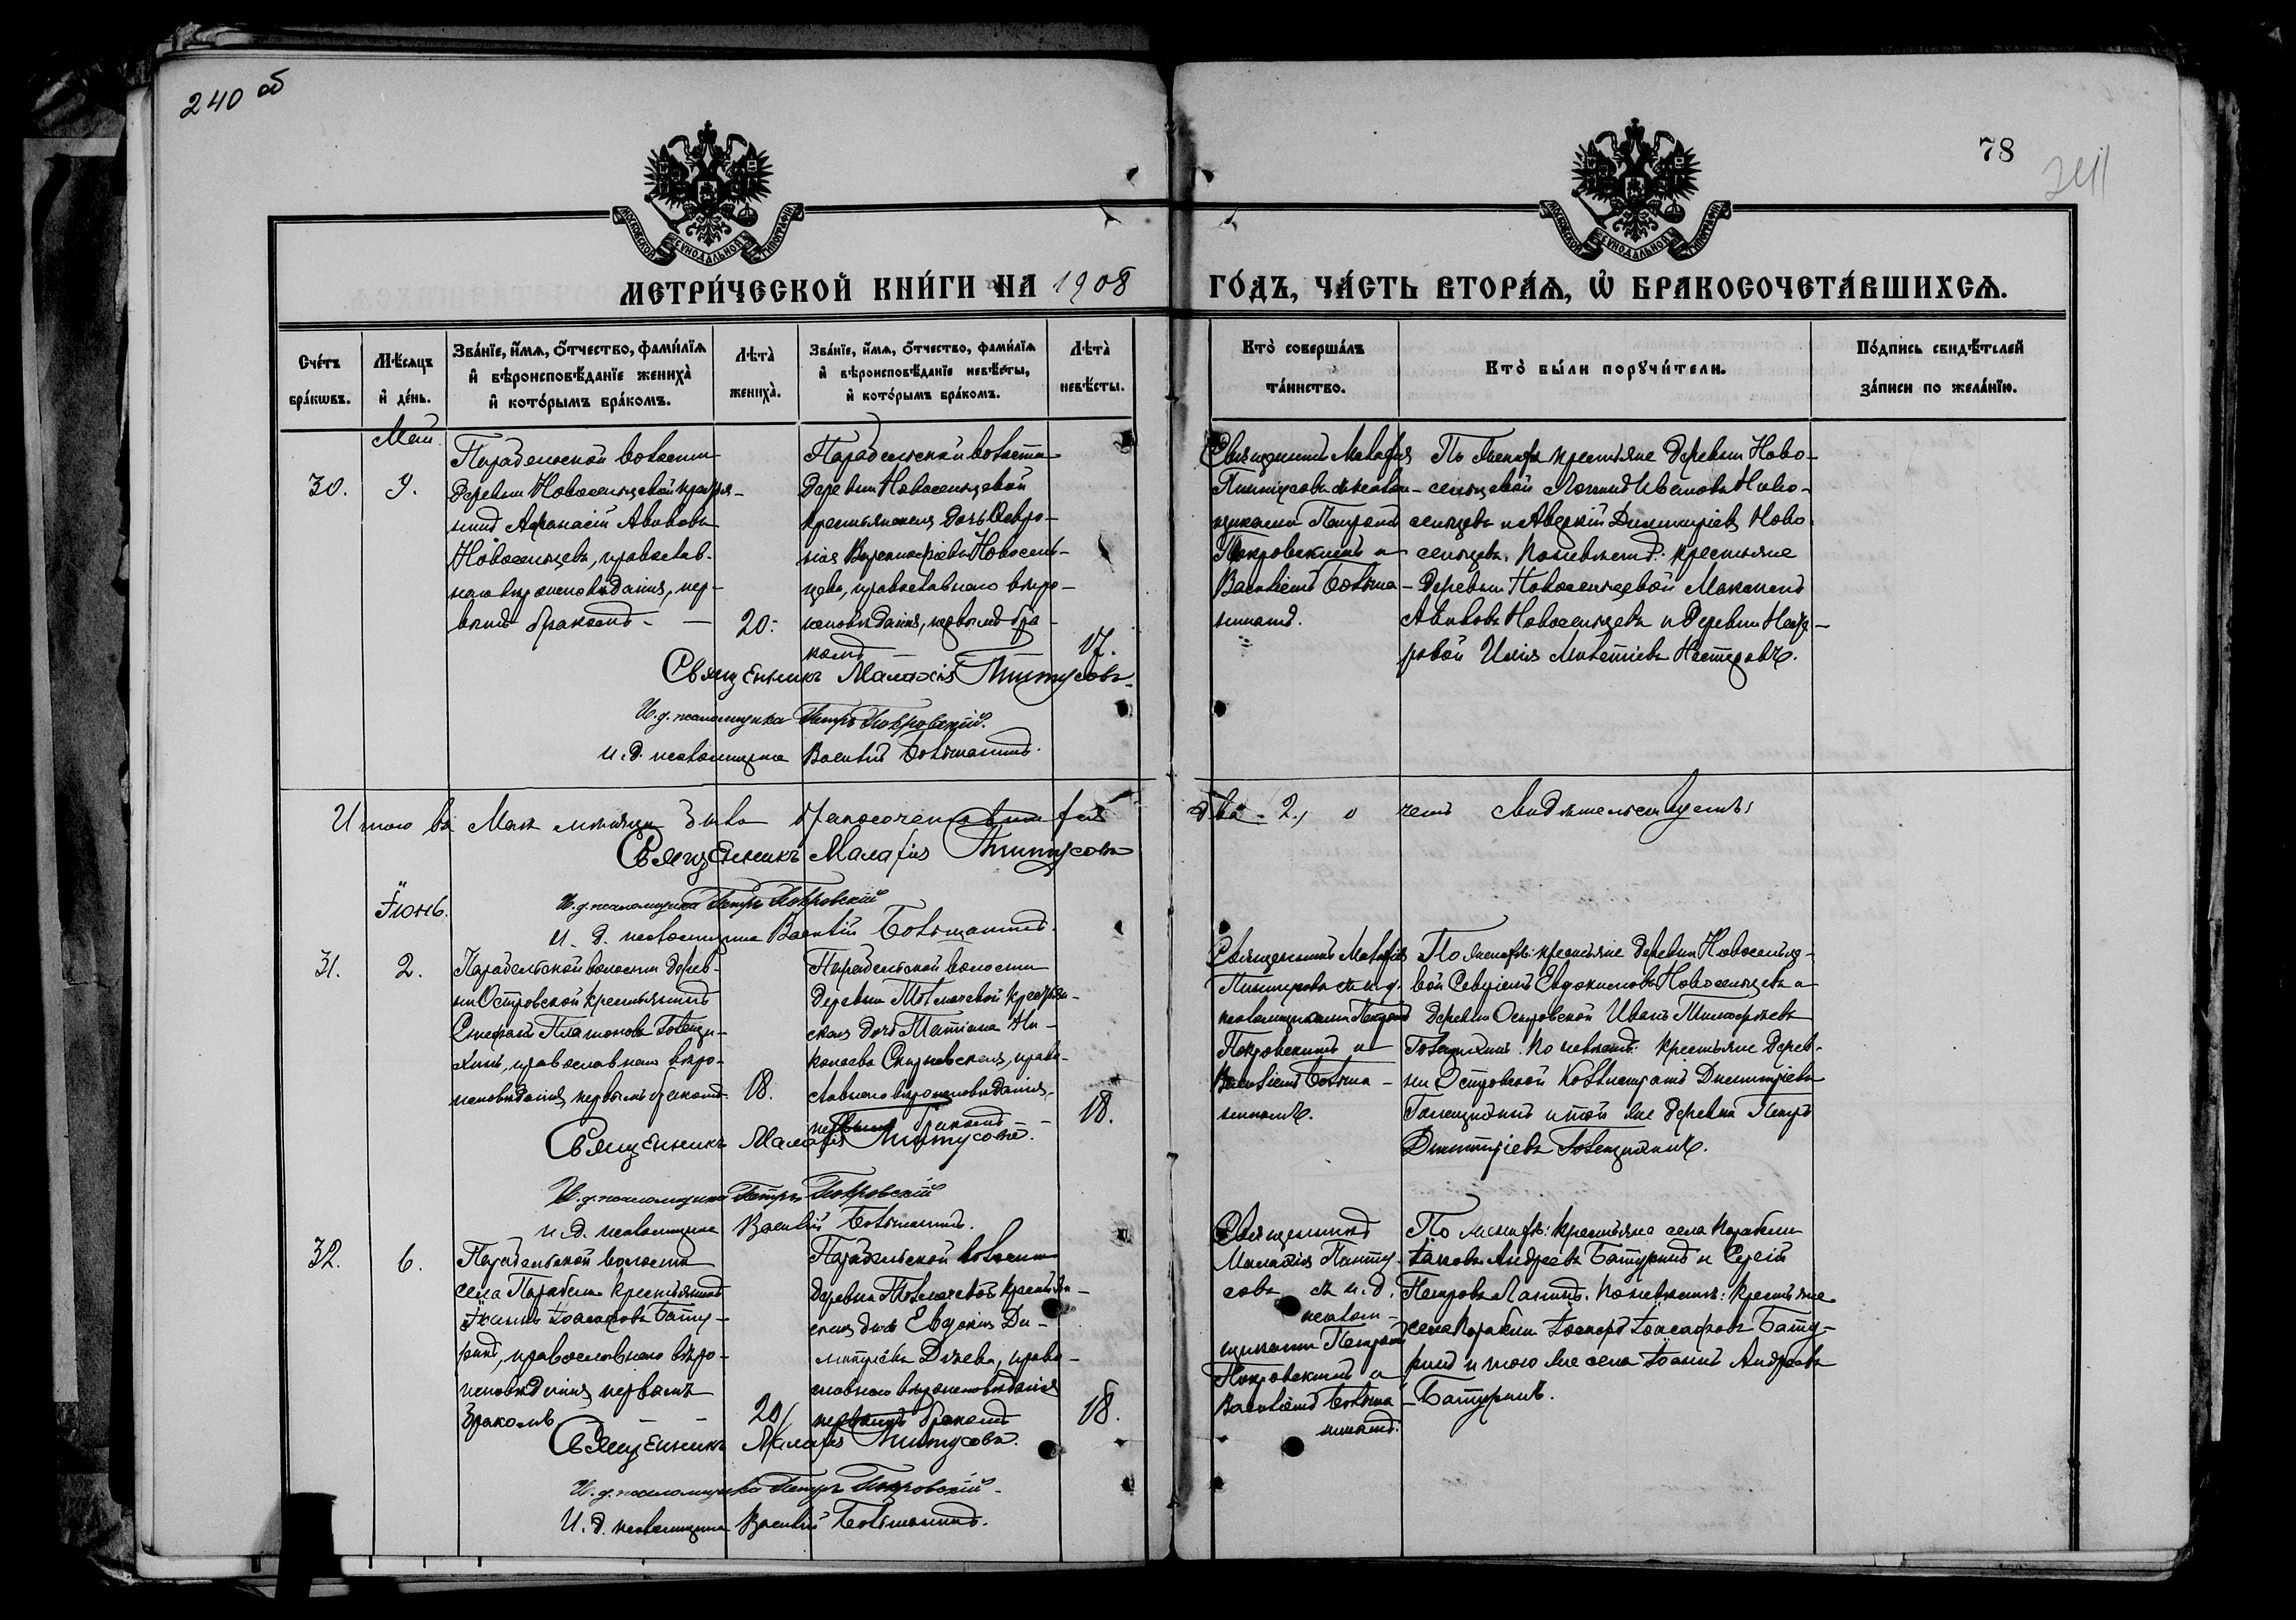 240 об
78
241
МОСКОВСКОЙ СѴНОДАЛЬНОЙ ТИПОГРАФІИ
МОСКОВСКОЙ СѴНОДАЛЬНОЙ ТИПОГРАФІИ
МЕТРИ́ЧЕСКОЙ КНИ́ГИ НА 1908 ГО́ДЪ, ЧА́СТЬ ВТОРА́Ѧ, Ѡ҆ БРАКОСОЧЕТА́ВШИХСѦ.
Сче́тъ бра́кѡвъ.
Мѣ́сѧцъ и҆ де́нь.
Зва́нїе, и҆́мѧ, ѻ҆́тчество, фами́лїѧ и҆ вѣроисповѣ́данїе жениха̀ и҆ кото́рымъ бра́комъ.
Лѣ́та̀ жениха̀.
Зва́нїе, и҆́мѧ, ѻ҆́тчество, фами́лїѧ и҆ вѣроисповѣ́данїе невѣ́сты, и҆ кото́рымъ бра́комъ.
Лѣ́та̀ невѣ́сты.
Кто̀ соверша́лъ та́инство.
Кто̀ бы́ли порꙋчи́тели.
По́дпись свидѣ́телей за́писи по жела́нїю.
Май.
30.
9.
Парабельской волости
деревни Новосельцевой крестья-
нинъ Афанасій Авивовъ
Новосельцевъ, православ-
наго вѣроисповѣданія, пер-
вымъ бракомъ
20.
Парабельской волости
деревни Новосельцевой
крестьянская дочь Февро-
нія Новосель-
цева, православнаго вѣро-
исповѣданія, первымъ бра-
комъ
17.
Священникъ Малахія Титусовъ
Покровскимъ и
Василіемъ Больша-
нинымъ.
По женихѣ крестьяне деревни Ново-
сельцевой Леонидъ Ивановъ Ново-
сельцевъ и Аверкій Димитріевъ Ново-
сельцевъ. По невѣстѣ: крестьяне
деревни Новосельцевой Максимъ
Авивовъ Новосельцевъ и деревни Несте-
ровой Илія Нестеровъ.
Священникъ Малахія Титусовъ
И. д. псаломщика Петръ Покровскій.
И. д. псаломщика Василій Большанинъ.
Итого въ Маѣ мѣсяцѣ было бракосочетавшихся два - 2, о чемъ свидѣтельствуемъ:
Священникъ Малахія Титусовъ
И. д. псаломщика Петръ Покровскій
И. д. псаломщика Василій Большанинъ.
Іюнь.
31.
2.
Парабельской волости дерев-
ни Островской крестьянинъ
Платоновъ Голещи-
хинъ, православнаго вѣро-
исповѣданія, первымъ бракомъ
18.
Парабельской волости
деревни Толмачевой крестьян-
ская дочь Татіана Ни-
колаева Скирневская, право-
славнаго вѣроисповѣданія,
первымъ бракомъ
18.
Священникъ Малахія
Титусовъ съ и. д.
псаломщиками Петромъ
Покровскимъ и
Василіемъ Больша-
нинымъ.
По женихѣ: крестьяне деревни Новосельце-
вой Евдокимовъ Новосельцевъ и
деревни Островской Иванъ
Голещихинъ. По невѣстѣ: крестьяне дерев-
ни Островской Каллистратъ Димитріевъ
Голещихинъ и той же деревни Петръ
Димитріевъ Голещихинъ.
Священникъ Малахія Титусовъ.
И. д. псаломщика Петръ Покровскій
И. д. псаломщика Василій Большанинъ.
32.
6.
Парабельской волости
села Парабели крестьянинъ
Іоаннъ Іоасафовъ Бату-
ринъ, православнаго вѣро-
исповѣданія, первымъ
бракомъ
20
Парабельской волости
деревни Толмачевой крестьян-
ская дочь Евдокія Ди-
митріева право-
славнаго вѣроисповѣданія
первымъ бракомъ
18.
Священникъ
Малахія Титу-
совъ съ и. д.
псалом-
щиками Петромъ
Покровскимъ и
Василіемъ Больша-
нинымъ.
По женихѣ: крестьяне села Парабели
Іаковъ Андреевъ Батуринъ и Сергій
Петровъ По невѣстѣ: крестьяне
села Парабели Іосифъ Іоасафовъ Бату-
ринъ и того же села Іоаннъ Андреевъ
Батуринъ.
Священникъ Малахія Титусовъ.
И. д. псаломщика Петръ Покровскій.
И. д. псаломщика Василій Большанинъ.